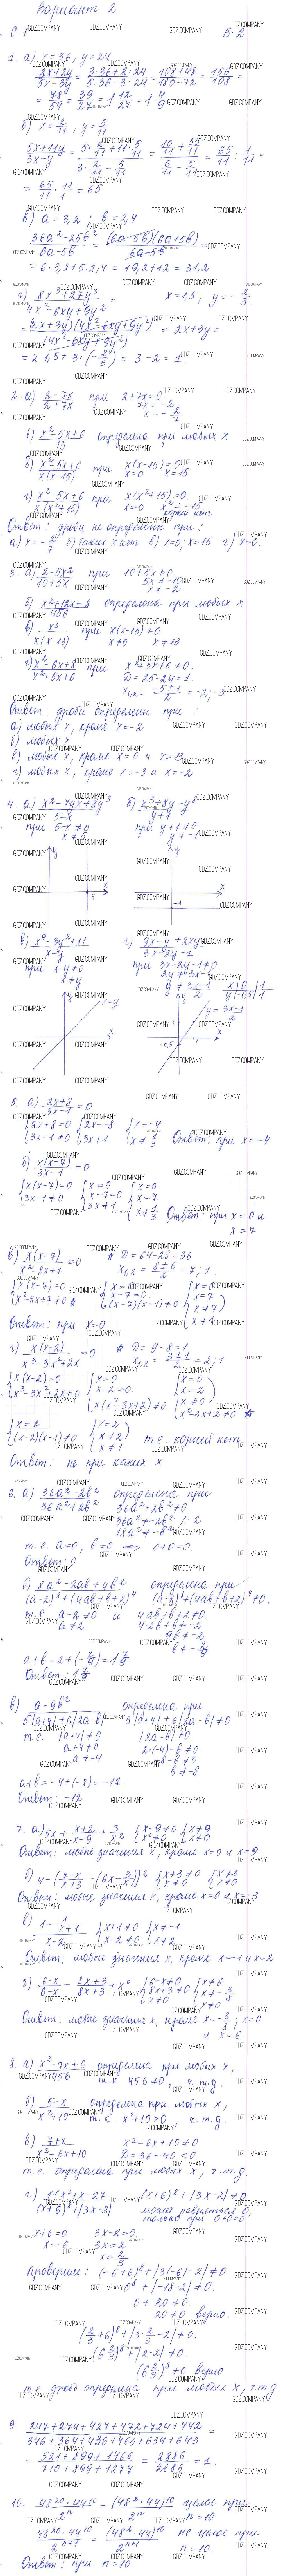 Вариант 2
С-1 В-2
1. а) x = 36, y = 24
(3x+2y)/(5x-3y) = (3·36+2·24)/(5·36-3·24) = (108+48)/(180-72) = 156/108 =
= 78/54 = 39/27 = 1 12/27 = 1 4/9
б) x = 2/11, y = 5/11
(5x+11y)/(3x-y) = (5·2/11+11·5/11)/(3·2/11-5/11) = (10/11+55/11)/(6/11-5/11) = 65/11 : 1/11 =
= 65/11 · 11/1 = 65
в) a = 3,2 ; b = 2,4
(36a²-25b²)/(6a-5b) = (6a-5b)(6a+5b)/(6a-5b) =
= 6·3,2+5·2,4 = 19,2+12 = 31,2
г) (8x³+27y³)/(4x²-6xy+9y²) = x=1,5; y = -2/3.
= (2x+3y)(4x²-6xy+9y²)/(4x²-6xy+9y²) = 2x+3y =
= 2·1,5+3·(-2/3) = 3-2 = 1.
2. а) (2-7x)/(2+7x) при 2+7x=0
7x = -2
x = -2/7
б) (x²-5x+6)/13 определена при любых x
в) (x²-5x+6)/(x(x-15)) при x(x-15)=0
x=0 x=15.
г) (x²-5x+6)/(x(x²+15)) при x(x²+15)=0
x=0 x²=-15
корней нет
Ответ: дроби не определены при:
а) x=-2/7 б) таких x нет в) x=0; x=15 г) x=0.
3. а) (2-5x²)/(10+5x) при 10+5x≠0
5x≠-10
x≠-2
б) (x²+12x-8)/456 определена при любых x
в) x³/(x(x-13)) при x(x-13)≠0
x≠0 x≠13
г) (x²-6x+8)/(x²+5x+6) при x²+5x+6≠0.
D=25-24=1
x₁,₂ = (-5±1)/2 = -2; -3
Ответ: дроби определены при:
а) любых x, кроме x=-2
б) любых x
в) любых x, кроме x=0 и x=13
г) любых x, кроме x=-3 и x=-2
4. а) (x²-7yx+8y³)/(5-x) б) (x³+8y-y⁴)/(y+1)
при 5-x≠0 при y+1≠0
x≠5 y≠-1
y y
5 x x
-1
в) (x⁹-3y²+11)/(x-y) г) (9x-y+2xy)/(3x-2y-1)
при x-y≠0 при 3x-2y-1≠0.
x≠y 2y≠3x-1
y≠(3x-1)/2 x|0|1
y|-0,5|1
x=y y=(3x-1)/2
-0,5
5. а) (2x+8)/(3x-1)=0
{2x+8=0 {2x=-8 {x=-4
{3x-1≠0 {3x≠1 {x≠1/3 Ответ: при x=-4
б) x(x-7)/(3x-1)=0
{x(x-7)=0 {x=0 {x=0
{3x-1≠0 {x-7=0 {x=7
{3x≠1 {x≠1/3 Ответ: при x=0 и
x=7
в) x(x-7)/(x²-8x+7)=0 * D=64-28=36
x₁,₂=(8±6)/2=7; 1
{x(x-7)=0 {x=0 {x=0
{x²-8x+7≠0 * {x-7=0 {x=7
{(x-7)(x-1)≠0 {x≠7
{x≠1
Ответ: при x=0
г) x(x-2)/(x³-3x²+2x)=0 * D=9-8=1
x₁,₂=(3±1)/2=2; 1
{x(x-2)=0 {x=0 {x=0
{x³-3x²+2x≠0 {x-2=0 {x=2
{x(x²-3x+2)≠0 {x≠0
{x²-3x+2≠0 *
{x=2 {x=2
{(x-2)(x-1)≠0 {x≠2 т.е. корней нет
{x≠1
Ответ: не при каких x
6. а) (36a²-2b²)/(36a²+2b²) определена при
36a²+2b²≠0
36a²≠-2b² /:2
18a²≠-b²
т.е. a=0, b=0 ⇒ 0+0=0
Ответ: 0
б) (8a²-2ab+4b²)/((a-2)⁸+(4ab+b+2)⁴) определена при:
(a-2)⁸+(4ab+b+2)⁴≠0.
т.е. a-2≠0 и 4ab+b+2≠0.
a≠2 4·2b+b≠-2
9b≠-2
b≠-2/9
a+b=2+(-2/9)=1 7/9
Ответ: 1 7/9
в) (a-9b²)/(5|a+4|+6|2a-b|) определена при
5|a+4|+6|2a-b|≠0.
т.е. |a+4|≠0 |2a-b|≠0
a+4≠0 2·(-4)-b≠0
a≠-4 -8-b≠0
b≠-8
a+b=-4+(-8)=-12.
Ответ: -12
7. а) 5x+(x+2)/(x-9)+3/x² {x-9≠0 {x≠9
{x²≠0 {x≠0
Ответ: любые значения x, кроме x=0 и x=9
Ответ: любые значения x, кроме x=0 и x=-3
{x+1≠0 {x≠-1
{x-2≠0 {x≠2
Ответ: любые значения x, кроме x=-1 и x=2
{6-x≠0 {x≠6
{8x+3≠0 {x≠-3/8
{x≠0 {x≠0
Ответ: любые значения x, кроме x=-3/8; x=0
и x=6
8. а) (x²-7x+6)/456 определена при любых x,
т.к 456≠0, ч.т.д.
б) (5-x)/(x²+10) определена при любых x,
т.к x²+10>0, ч.т.д.
в) (7+x)/(x²-6x+10) x²-6x+10≠0
D=36-40<0
т.е. определена при любых x, ч.т.д.
г) (11x²+x-27)/((x+6)⁸+|3x-2|) (x+6)⁸+|3x-2|≠0
может равняться 0,
только при 0+0=0
x+6=0 3x-2=0
x=-6 3x=2
x=2/3
Проверим: (-6+6)⁸+|3(-6)-2|≠0
0⁸+|-18-2|≠0.
0+20≠0
20≠0 верно
(2/3+6)⁸+|3·2/3-2|≠0.
(6 2/3)⁸+|2-2|≠0
(6 2/3)⁸≠0 верно
т.е. дробь определена при любых x, ч.т.д
9. (247+274+427+472+724+742)/(346+364+436+463+634+643) =
= (521+899+1466)/(710+899+1277) = 2886/2886 = 1.
10. (48²⁰·44¹⁰)/2ⁿ = (48²·44)¹⁰/2ⁿ целое при
n=10
(48²⁰·44¹⁰)/2ⁿ⁺¹ = (48²·44)¹⁰/2ⁿ⁺¹ не целое при
n=10.
Ответ: при n=10